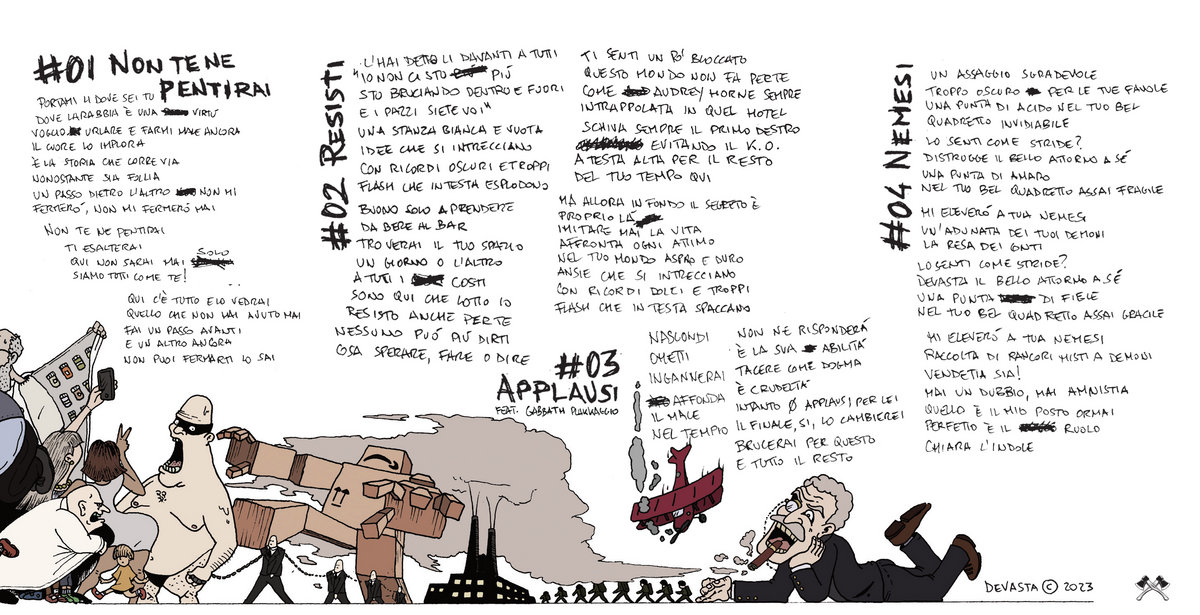 #01 NON TE NE
PENTIRAI
PORTAMI LÌ DOVE SEI TU
DOVE LA RABBIA È UNA VIRTÙ
VOGLIO URLARE E FARMI MALE ANCORA
IL CUORE LO IMPLORA
È LA STORIA CHE CORRE VIA
NONOSTANTE SIA FOLLIA
UN PASSO DIETRO L'ALTRO NON MI
FERMERÓ, NON MI FERMERÓ MAI
NON TE NE PENTIRAI
TI ESALTERAI
QUI NON SARAI MAI SOLO
SIAMO TUTTI COME TE!
QUI C'È TUTTO E LO VEDRAI
QUELLO CHE NON HAI AVUTO MAI
FAI UN PASSO AVANTI
E UN ALTRO ANCORA
NON PUOI FERMARTI LO SAI
#02 RESISTI
L'HAI DETTO LÌ DAVANTI A TUTTI
"IO NON CI STO PIÚ
STO BRUCIANDO DENTRO E FUORI
E I PAZZI SIETE VOI"
UNA STANZA BIANCA E VUOTA
IDEE CHE SI INTRECCIANO
CON RICORDI OSCURI E TROPPI
FLASH CHE IN TESTA ESPLODONO
BUONO SOLO A PRENDERE
DA BERE AL BAR
TROVERAI IL TUO SPAZIO
UN GIORNO O L'ALTRO
A TUTTI I COSTI
SONO QUI CHE LOTTO IO
RESISTO ANCHE PER TE
NESSUNO PUÓ PIÚ DIRTI
COSA SPERARE, FARE O DIRE
TI SENTI UN PO' BLOCCATO
QUESTO MONDO NON FA PER TE
COME AUDREY HORNE SEMPRE
INTRAPPOLATA IN QUEL HOTEL
SCHIVA SEMPRE IL PRIMO DESTRO
EVITANDO IL K.O.
A TESTA ALTA PER IL RESTO
DEL TUO TEMPO QUI
MA ALLORA IN FONDO IL SEGRETO È
PROPRIO LÀ
IMITARE MAI LA VITA
AFFRONTA OGNI ATTIMO
NEL TUO MONDO ASPRO E DURO
ANSIE CHE SI INTRECCIANO
CON RICORDI DOLCI E TROPPI
FLASH CHE IN TESTA SPACCANO
#03
APPLAUSI
FEAT. GABBATH PLAKKAGGIO
NASCONDI
OMETTI
INGANNERAI
AFFONDA
IL MALE
NEL TEMPIO
NON NE RISPONDERÁ
È LA SUA ABILITÀ
TACERE COME DOGMA
È CRUDELTÀ
INTANTO Ø APPLAUSI PER LEI
IL FINALE, SI, LO CAMBIEREI
BRUCERAI PER QUESTO
E TUTTO IL RESTO
#04 NEMESI
UN ASSAGGIO SGRADEVOLE
TROPPO OSCURO PER LE TUE FAVOLE
UNA PUNTA DI ACIDO NEL TUO BEL
QUADRETTO INVIDIABILE
LO SENTI COME STRIDE?
DISTRUGGE IL BELLO ATTORNO A SÉ
UNA PUNTA DI AMARO
NEL TUO BEL QUADRETTO ASSAI FRAGILE
MI ELEVERÓ A TUA NEMESI
UN'ADUNATA DEI TUOI DEMONI
LA RESA DEI CONTI
LO SENTI COME STRIDE?
DEVASTA IL BELLO ATTORNO A SÉ
UNA PUNTA DI FIELE
NEL TUO BEL QUADRETTO ASSAI GRACILE
MI ELEVERÓ A TUA NEMESI
RACCOLTA DI RANCORI MISTI A DEMONI
VENDETTA SIA!
MAI UN DUBBIO, MAI AMNISTIA
QUELLO È IL MIO POSTO ORMAI
PERFETTO È IL RUOLO
CHIARA L'INDOLE
DEVASTA © 2023